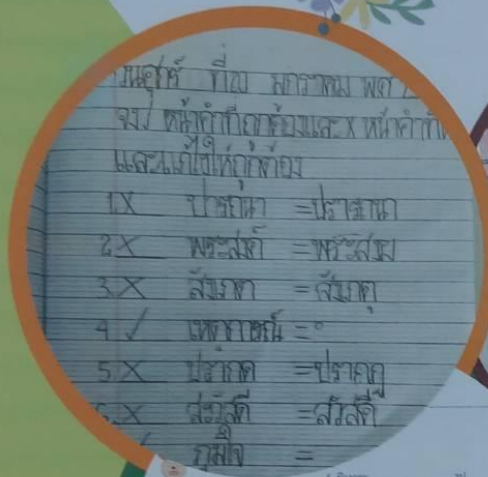 วันศุกร์ ที่ 20 มกราคม พศ
จง / หน้าคำที่ถูกต้องและ x หน้าคำที่
และแก้ไขให้ถูกต้อง
1. X ปารถนา = ปรารถนา
2. X พระสงค์ = พระสงฆ
3. X สังเกต = สังเกตุ
4 ✓ เหตุการณ์ =
5. X ปรากด = ปรากฎ
6. X สวัสดี = สวัสดี
✓ ภูมิใจ =